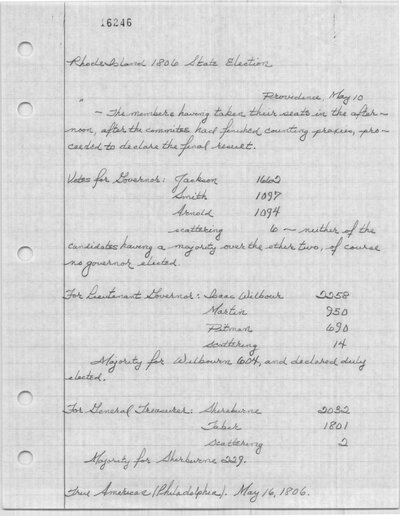 16246
Rhode Island 1806 State Election
Providence, May 10
" — The members having taken their seats in the after-
noon, after the commitee had finished counting proxies, pro-
ceeded to declare the final result.
Votes for Governor: Jackson 1662
Smith 1097
Arnold 1094
scattering 6 — neither of the
candidates having a majority over the other two, of course
no governor elected.
For Lieutenant Governor: Isaac Wilbour 2258
Martin 950
Pitman 690
scattering 14
Majority for Wilbourn 604, and declared duly
elected.
For General Treasurer: Shireburne 2032
Taber 1801
scattering 2
Majority for Sherburne 229.
True American (Philadelphia). May 16, 1806.